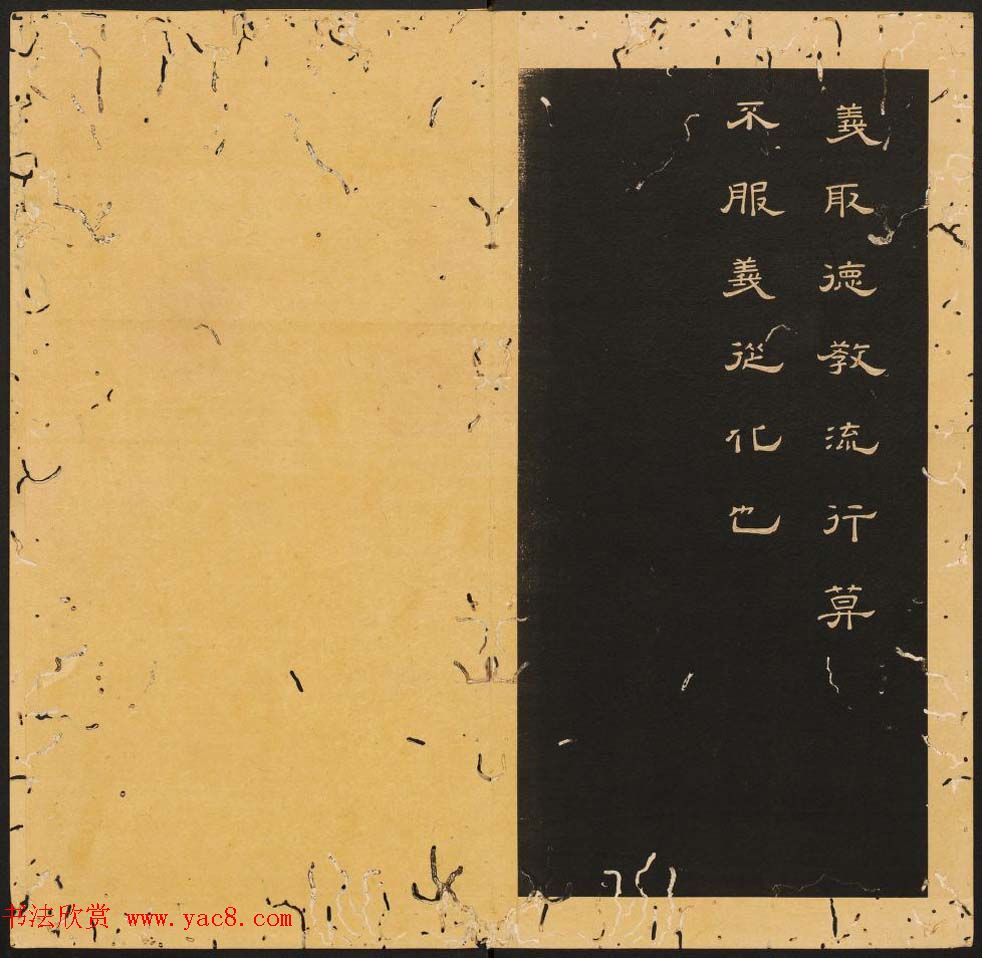 義取德教流行莫
不服義從化也
书法欣赏 www.yac8.com